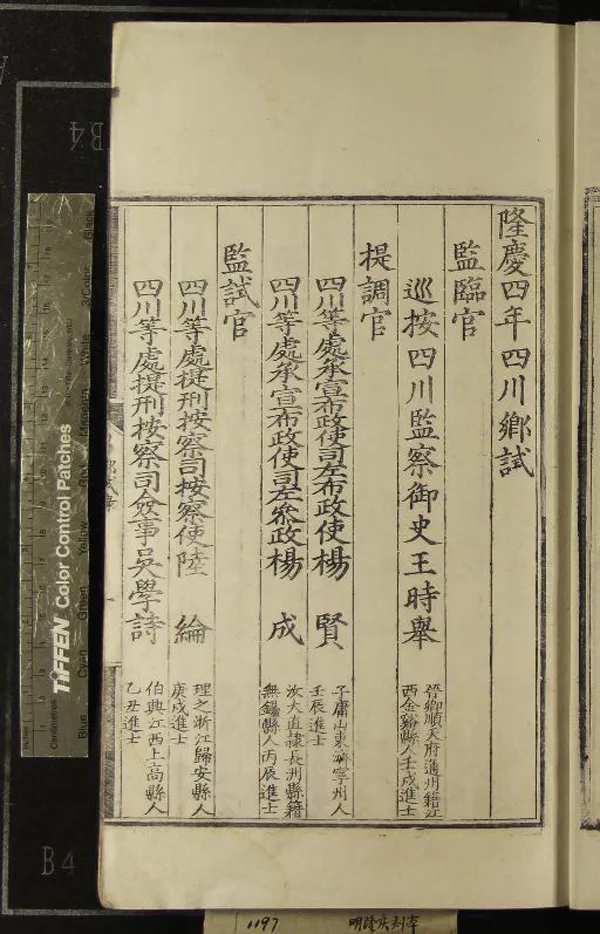 隆慶四年四川鄉試
監臨官
巡按四川監察御史王時舉
晉卿順天府通州籍江
西金谿縣人壬戌進士
提調官
四川等處承宣布政使司左布政使楊賢
子庸山東濟寧州人
壬辰進士
四川等處承宣布政使司左叅政楊成
汝大直隸長洲縣籍
無錫縣人丙辰進士
監試官
四川等處提刑按察司按察使陸綸
理之浙江歸安縣人
庚戌進士
四川等處提刑按察司僉事吳學詩
伯與江西上高縣人
乙丑進士
TIFFEN Color Control Patches
Centimetres
Blue
Cyan
Green
Yellow
Red
Magenta
White
3/Color
Black
B4
B4
1197
明隆庆刻本